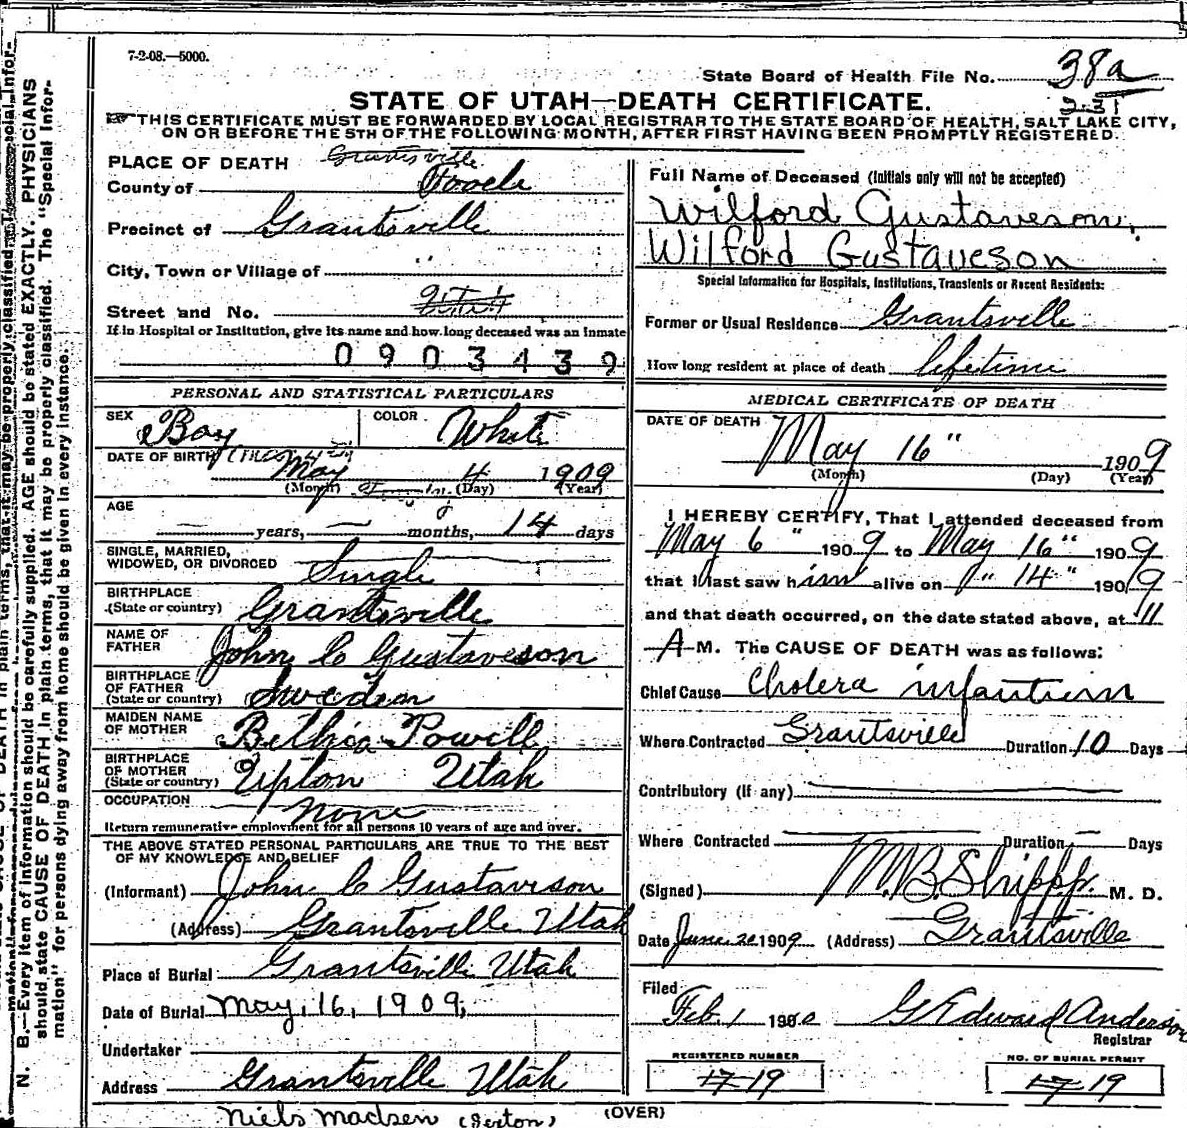 7-2-08.—5000.
State Board of Health File No. 38a
STATE OF UTAH—DEATH CERTIFICATE.
THIS CERTIFICATE MUST BE FORWARDED BY LOCAL REGISTRAR TO THE STATE BOARD OF HEALTH, SALT LAKE CITY,
ON OR BEFORE THE 5TH OF THE FOLLOWING MONTH, AFTER FIRST HAVING BEEN PROMPTLY REGISTERED.
PLACE OF DEATH Grantsville
County of Tooele
Precinct of Grantsville
City, Town or Village of "
Street and No.
If in Hospital or Institution, give its name and how long deceased was an inmate
0903439
PERSONAL AND STATISTICAL PARTICULARS
SEX Boy COLOR White
DATE OF BIRTH May 4 1909
(Month) (Day) (Year)
AGE
— years, — months, 14 days
SINGLE, MARRIED,
WIDOWED, OR DIVORCED Single
BIRTHPLACE
(State or country) Grantsville
NAME OF
FATHER John C Gustaveson
BIRTHPLACE
OF FATHER
(State or country) Sweden
MAIDEN NAME
OF MOTHER Bethia Powell
BIRTHPLACE
OF MOTHER
(State or country) Upton Utah
OCCUPATION None
Return remunerative employment for all persons 10 years of age and over.
THE ABOVE STATED PERSONAL PARTICULARS ARE TRUE TO THE BEST
OF MY KNOWLEDGE AND BELIEF
(Informant) John C Gustaveson
(Address) Grantsville Utah
Place of Burial Grantsville Utah
Date of Burial May, 16, 1909,
Undertaker
Address Grantsville Utah
Niels Madsen (Sexton)
(OVER)
Full Name of Deceased (Initials only will not be accepted)
Wilford Gustaveson,
Wilford Gustaveson
Special Information for Hospitals, Institutions, Transients or Recent Residents:
Former or Usual Residence Grantsville
How long resident at place of death lifetime
MEDICAL CERTIFICATE OF DEATH
DATE OF DEATH
May 16" 1909
(Month) (Day) (Year)
I HEREBY CERTIFY, That I attended deceased from
May 6 " 1909 to May 16" 1909
that I last saw him alive on " 14 " 1909
and that death occurred, on the date stated above, at 11
A M. The CAUSE OF DEATH was as follows:
Chief Cause Cholera infantum
Where Contracted Grantsville Duration 10 Days
Contributory (if any)
Where Contracted Duration Days
(Signed) M.B. Shipp M. D.
Date June 20 1909 (Address) Grantsville
Filed
Feb. 1 1910 G Edward Anderson
Registrar
REGISTERED NUMBER
17 19
NO. OF BURIAL PERMIT
17 19
N. B.—Every item of information should be carefully supplied. AGE should be stated EXACTLY. PHYSICIANS
should state CAUSE OF DEATH in plain terms, that it may be properly classified. The "Special Infor-
mation" for persons dying away from home should be given in every instance.